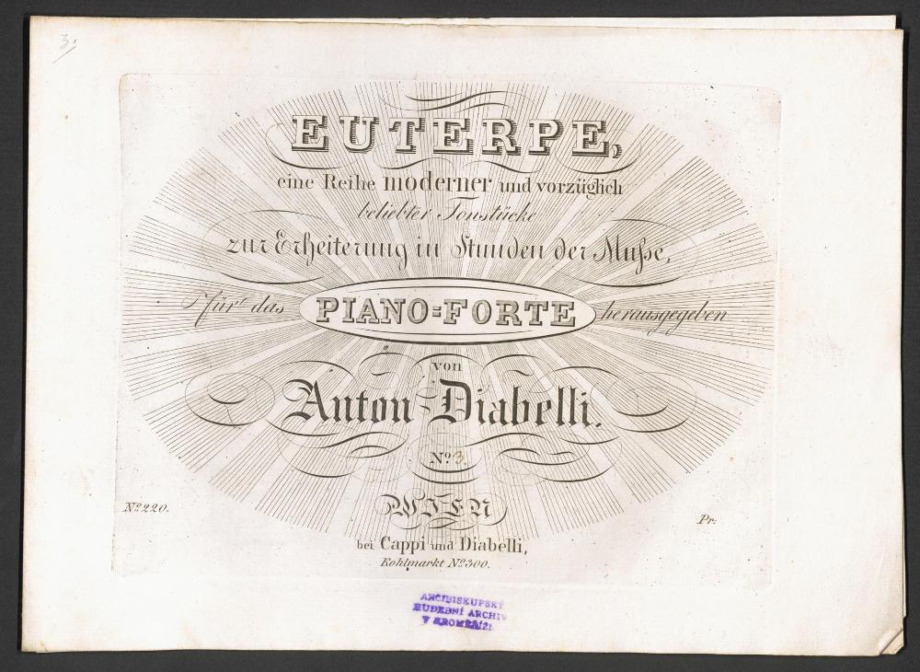 3.
EUTERPE,
eine Reihe moderner und vorzüglich
beliebter Tonstücke
zur Erheiterung in Stunden der Muſse,
für das PIANO=FORTE herausgegeben
von
Anton Diabelli.
No. 3.
WIEN
No. 220.
Pr.
bei Cappi und Diabelli,
Kohlmarkt No. 300.
ARCIBISKUPSKÝ
HUDEBNÍ ARCHIV
V KROMĚŘÍŽI